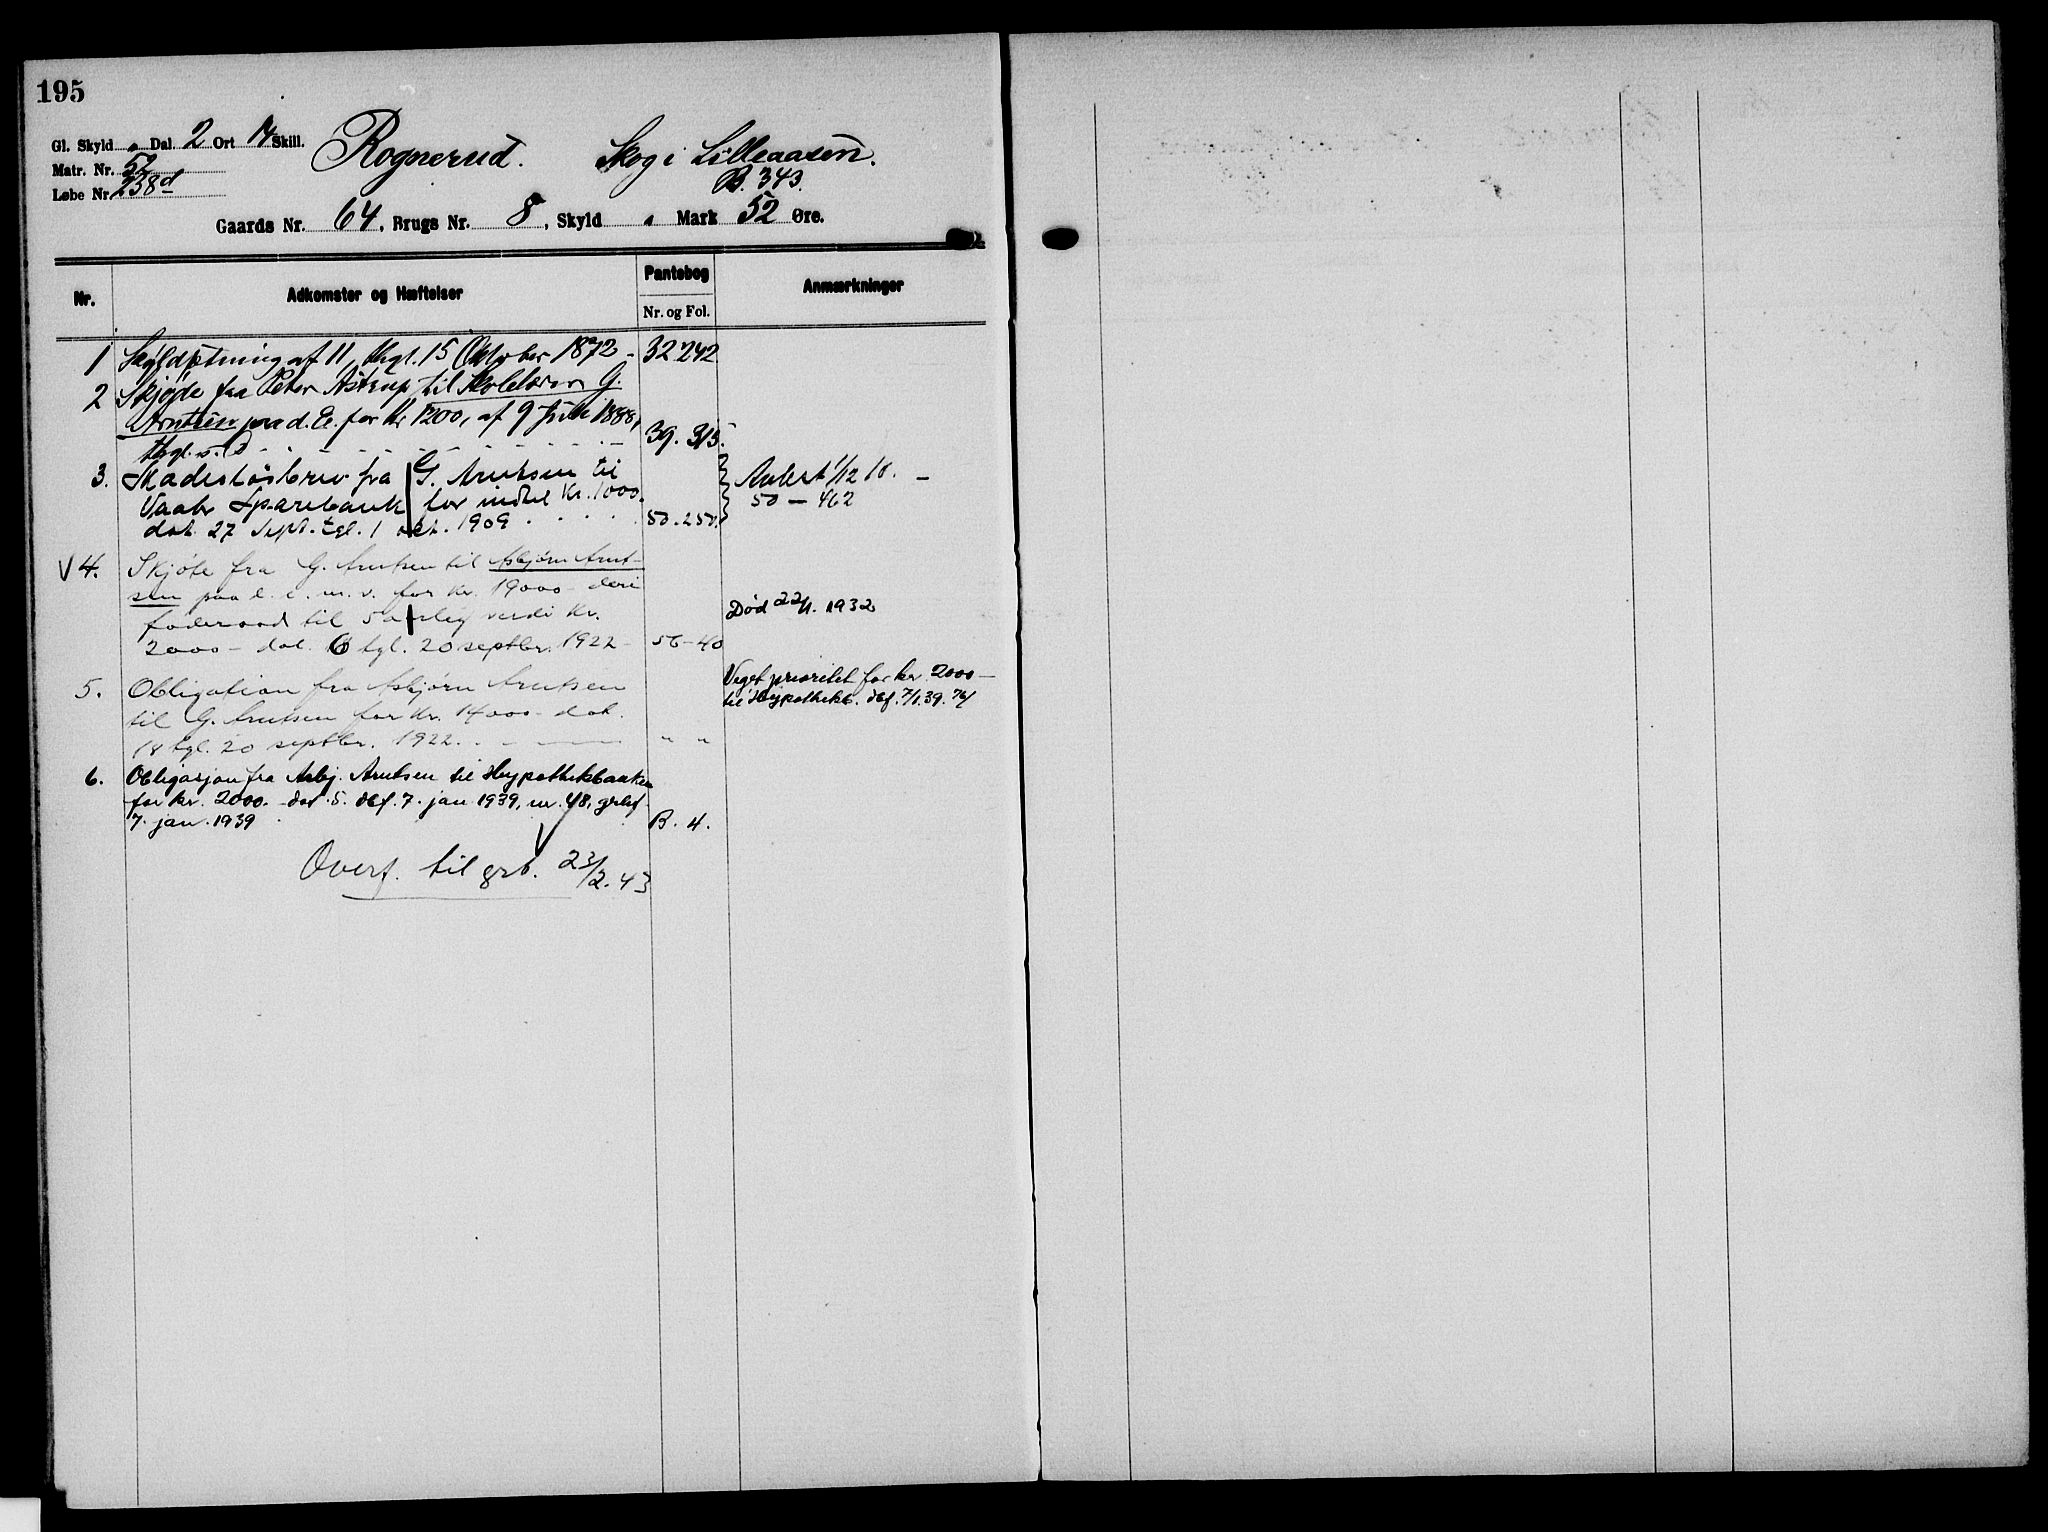 195
Gl. Skyld „ Dal. 2 Ort 14 Skill.
Rognerud. Skog i Lilleaasen.
Matr. Nr. 52
B. 343.
Løbe Nr. 238d
Gaards Nr. 64, Brugs Nr. 8, Skyld „ Mark 52 Øre.
Nr.
Adkomster og Hæftelser
Pantebog
Nr. og Fol.
Anmærkninger
1 Skyldsetning af 11, thgl. 15 Oktober 1872 - 32 242
2 Skjøde fra Peter Astrup til Skolelærer G.
Arntsen paa d. E. for Kr 1200, af 9 Juli 1888,
thgl. s. D 39. 315.
3. Skadesløsbrev fra G. Arntsen til
Vaaler Sparebank for indtil Kr. 1000.
dat. 27 Sept. tgl. 1 okt. 1909 50. 250.
Avlest 1/12 10. -
50 - 462
V 4. Skjøte fra G. Arntsen til Asbjørn Arnt-
sen paa d. e. m. v. for kr. 19000 - deri
føderaad til 5 aarlig verdi kr.
2000 - dat. 18 tgl. 20 septbr. 1922 - 56 - 40
Død 22/1. 1932
5. Obligation fra Asbjørn Arntsen
til G. Arntsen for kr. 14000 - dat.
18 tgl. 20 septbr. 1922. „ „
Veget prioritet for kr. 2000 -
til Hypothekb. dbf. 7/1.39.
6. Obligasjon fra Asbj. Arntsen til Hypothekbanken
for kr. 2000. - dat. 5. dbf. 7. jan 1939, nr. 48, grbf.
7. jan. 1939 B. 4.
Overf. til grb. 23/2. 43